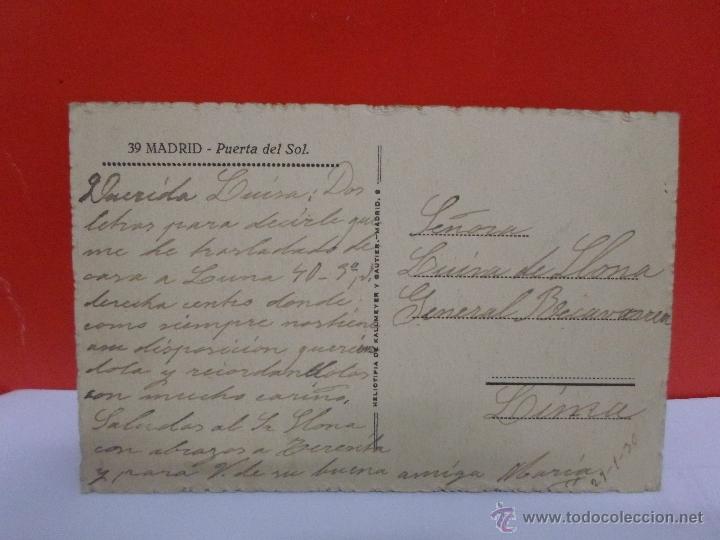 39 MADRID - Puerta del Sol.
Querida Luisa: Dos
letras para decirle que
me he trasladado de
casa a Luna 40-3º,
derecha centro donde
como siempre nos tiene
a su disposición querién
dola y recordandolos
con mucho cariño.
Saludos al Sr Llona
con abrazos a Teresita
y para V. de su buena amiga María
HELIOTIPIA DE KALLMEYER Y GAUTIER.-MADRID. 9
Señora
Luisa de Llona
General
Lima
21-1-30
todocoleccion
© www.todocoleccion.net